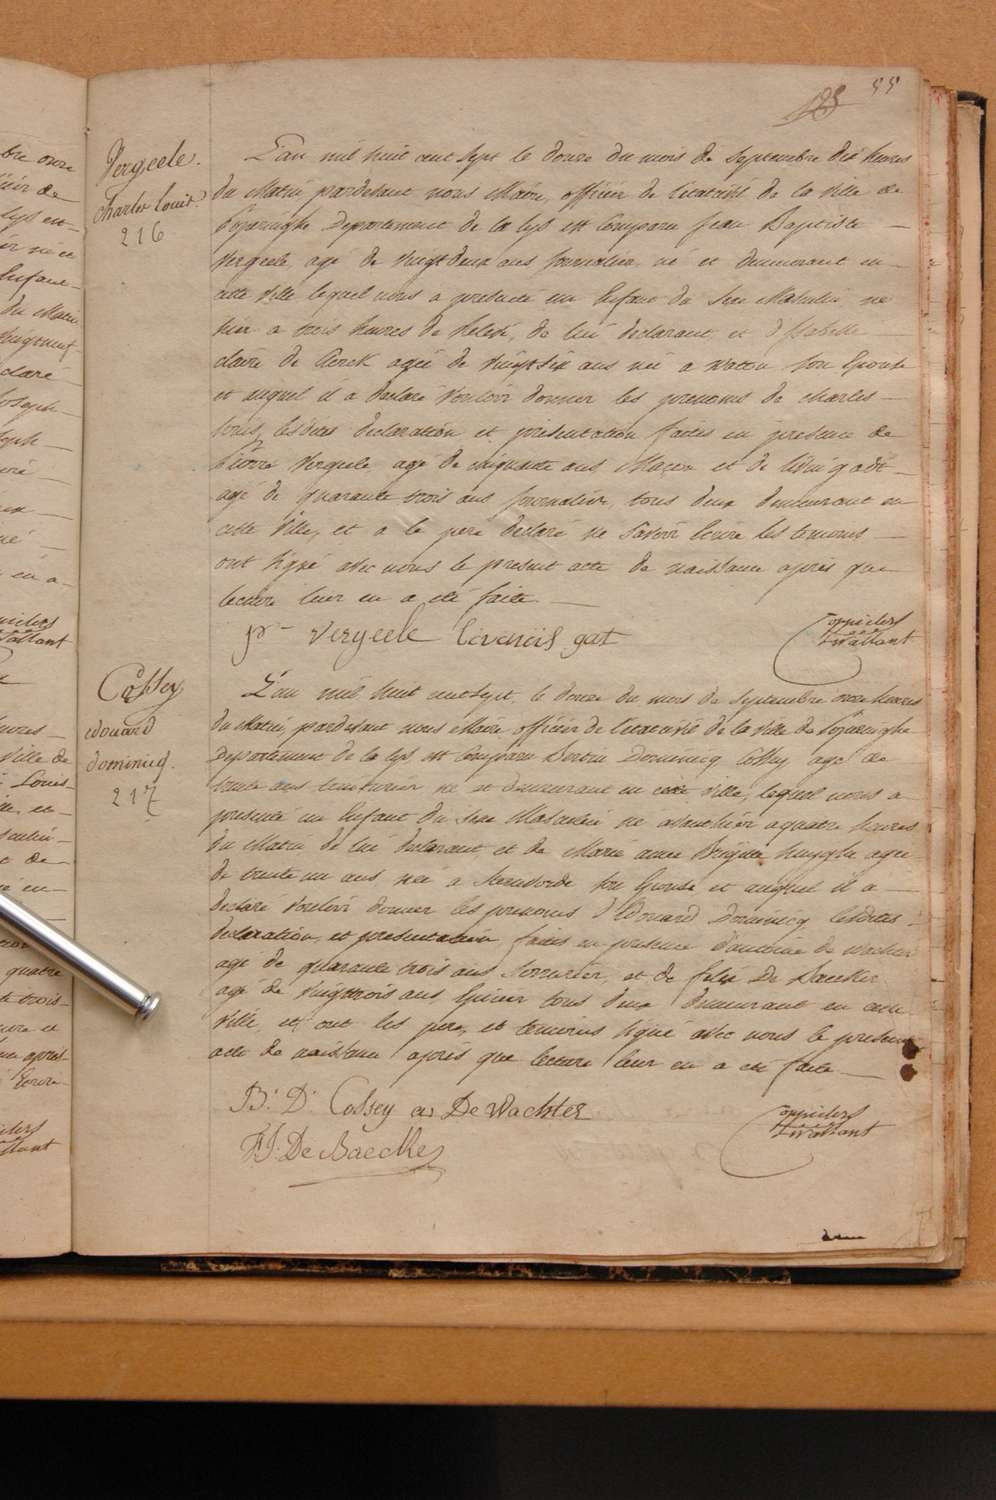 55
Vergeele.
charles louis.
216
L'an mil huit cent sept le douze du mois de Septembre dix heures
du Matin pardevant nous Maire, officier de l'etatcivil de la ville de
Poperinghe Departement de la lys est Comparu Jean Baptiste
Vergeele agé de vingtdeux ans journalier né et demeurant en
cette ville lequel nous a presenté un Enfant du Sexe Masculin né
hier a trois heures de de lui declarant, et d'Isabelle
claire de Clerck agée de vingtsix ans née a Watou son Epouse
et auquel il a declaré vouloir donner les prenoms de charles
louis, lesdites declaration et presentation faites en presence de
Pierre Vergeele agé de cinquante ans Maçon et de Livin gadt
agé de quarante trois ans journalier, tous deux demeurant en
cette ville, et a le pere declaré ne savoir ecrire les temoins
ont signé avec nous le present acte de naissance après que
lecture leur en a été faite
pr vergeele livenüs gat
Coppieters
t'wallant
Cossey
edouard
dominicq.
217
L'an mil huit cent sept le douze du mois de Septembre onze heures
du Matin, pardevant nous Maire officier de l'etatcivil de la ville de Poperinghe
Departement de la lys est Comparu Bertin Dominicq Cossey agé de
trente ans teinturier né et demeurant en cette ville, lequel nous a
presenté un Enfant du Sexe Masculin né avanthier a quatre heures
du Matin de lui declarant et de Marie anne Brigitte huyghe agée
de trente un ans née a Steenvorde son Epouse et auquel il a
declaré vouloir donner les prenoms d'Edouard Dominicq lesdites
declaration et presentation faites en presence d'antoine de wachter
agé de quarante trois ans Serrurier, et de felix De Baecker
agé de vingttrois ans Epicier tous deux demeurant en cette
ville, et ont les pere, et temoins signé avec nous le present
acte de naissance après que lecture leur en a été faite
B. D. Cossey DeWachter
F. J. De Baecke
Coppieters
t'wallant